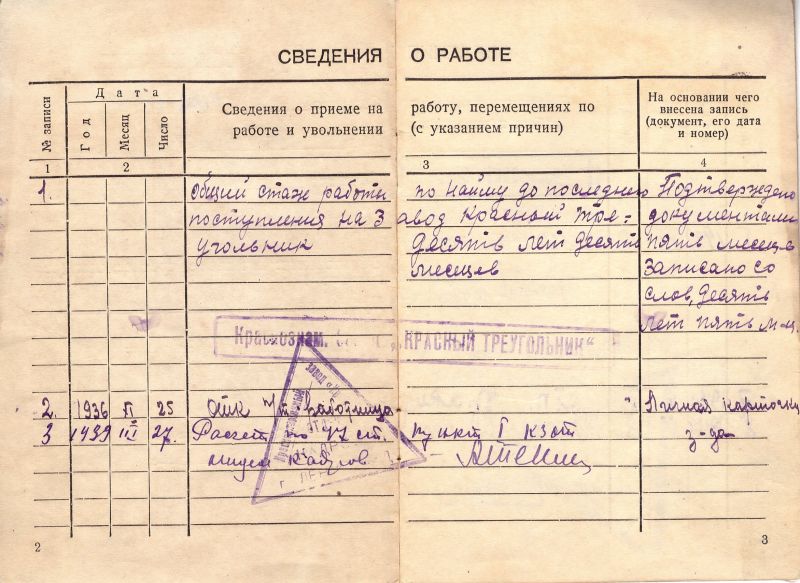 СВЕДЕНИЯ О РАБОТЕ
№ записи
Дата
Год
Месяц
Число
Сведения о приеме на работу, перемещениях по
работе и увольнении (с указанием причин)
На основании чего
внесена запись
(документ, его дата
и номер)
1 2 3 4
1. Общий стаж работы по найму до последнего
поступления на завод Красный тре-
угольник десять лет десять
месяцев
Подтверждено
документами
пять месяцев
Записано со
слов, десять
лет пять м-ц.
Краснознам. „КРАСНЫЙ ТРЕУГОЛЬНИК“
2. 1936 II 25 работница Личная карточка
3 1939 III 27. Расчет по 47 ст. пункт Г КЗОТ з-да
2
3